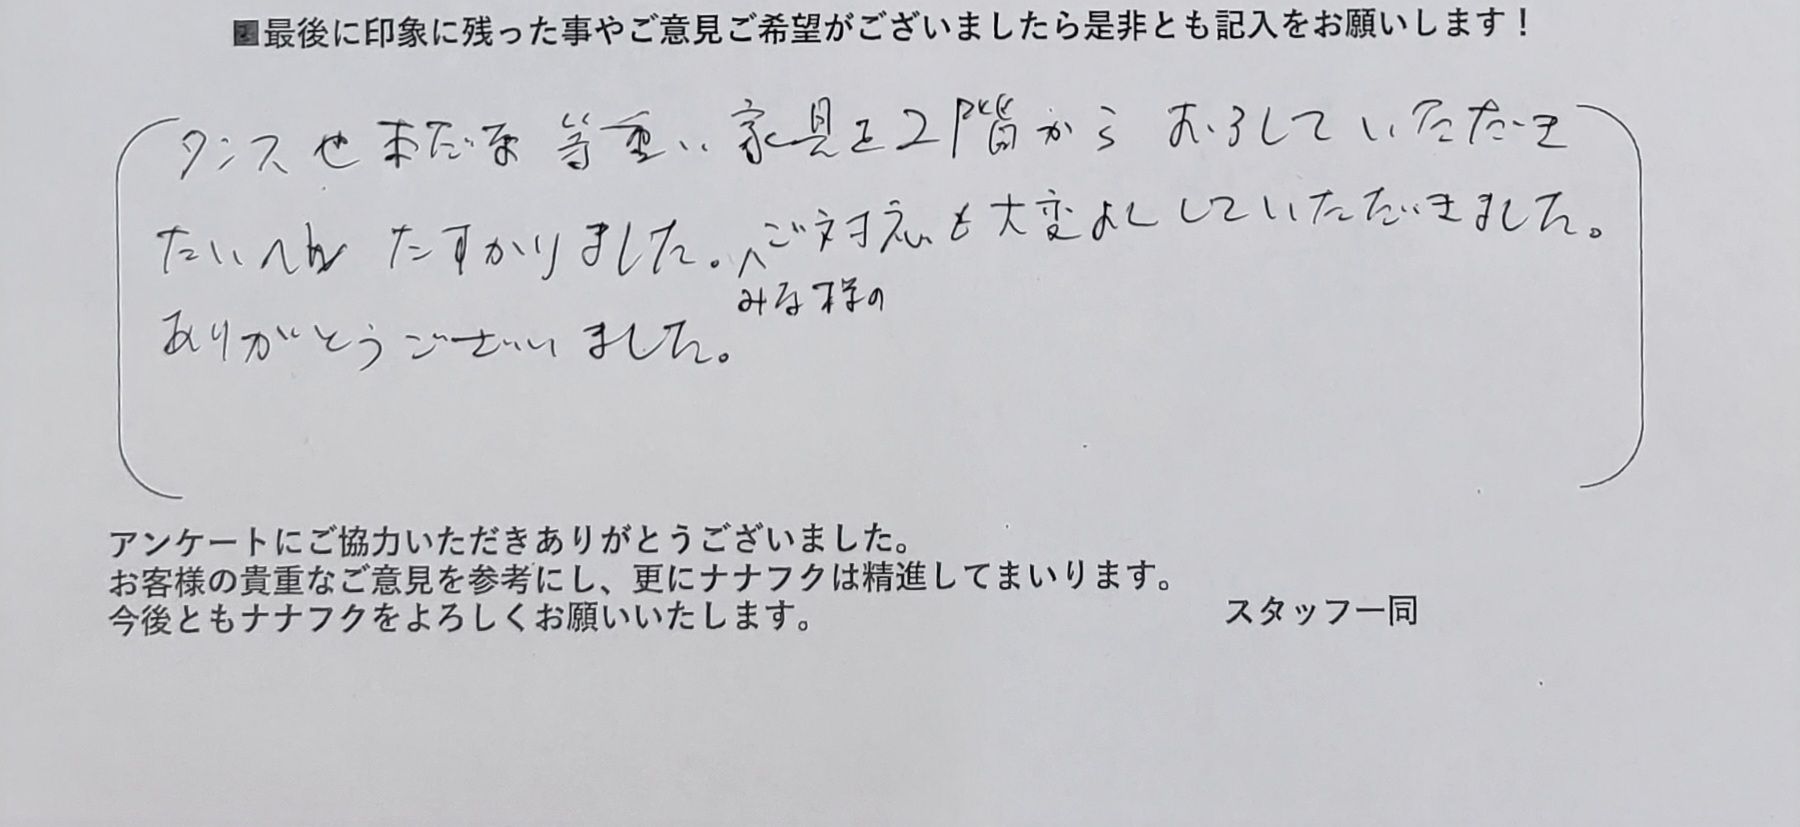 最後に印象に残った事やご意見ご希望がございましたら是非とも記入をお願いします！
タンスや本だな等重い家具を2階からおろしていただき
たいへん たすかりました。ご対応も大変よくしていただきました。
みな様の
ありがとうございました。
アンケートにご協力いただきありがとうございました。
お客様の貴重なご意見を参考にし、更にナナフクは精進してまいります。
今後ともナナフクをよろしくお願いいたします。
スタッフ一同